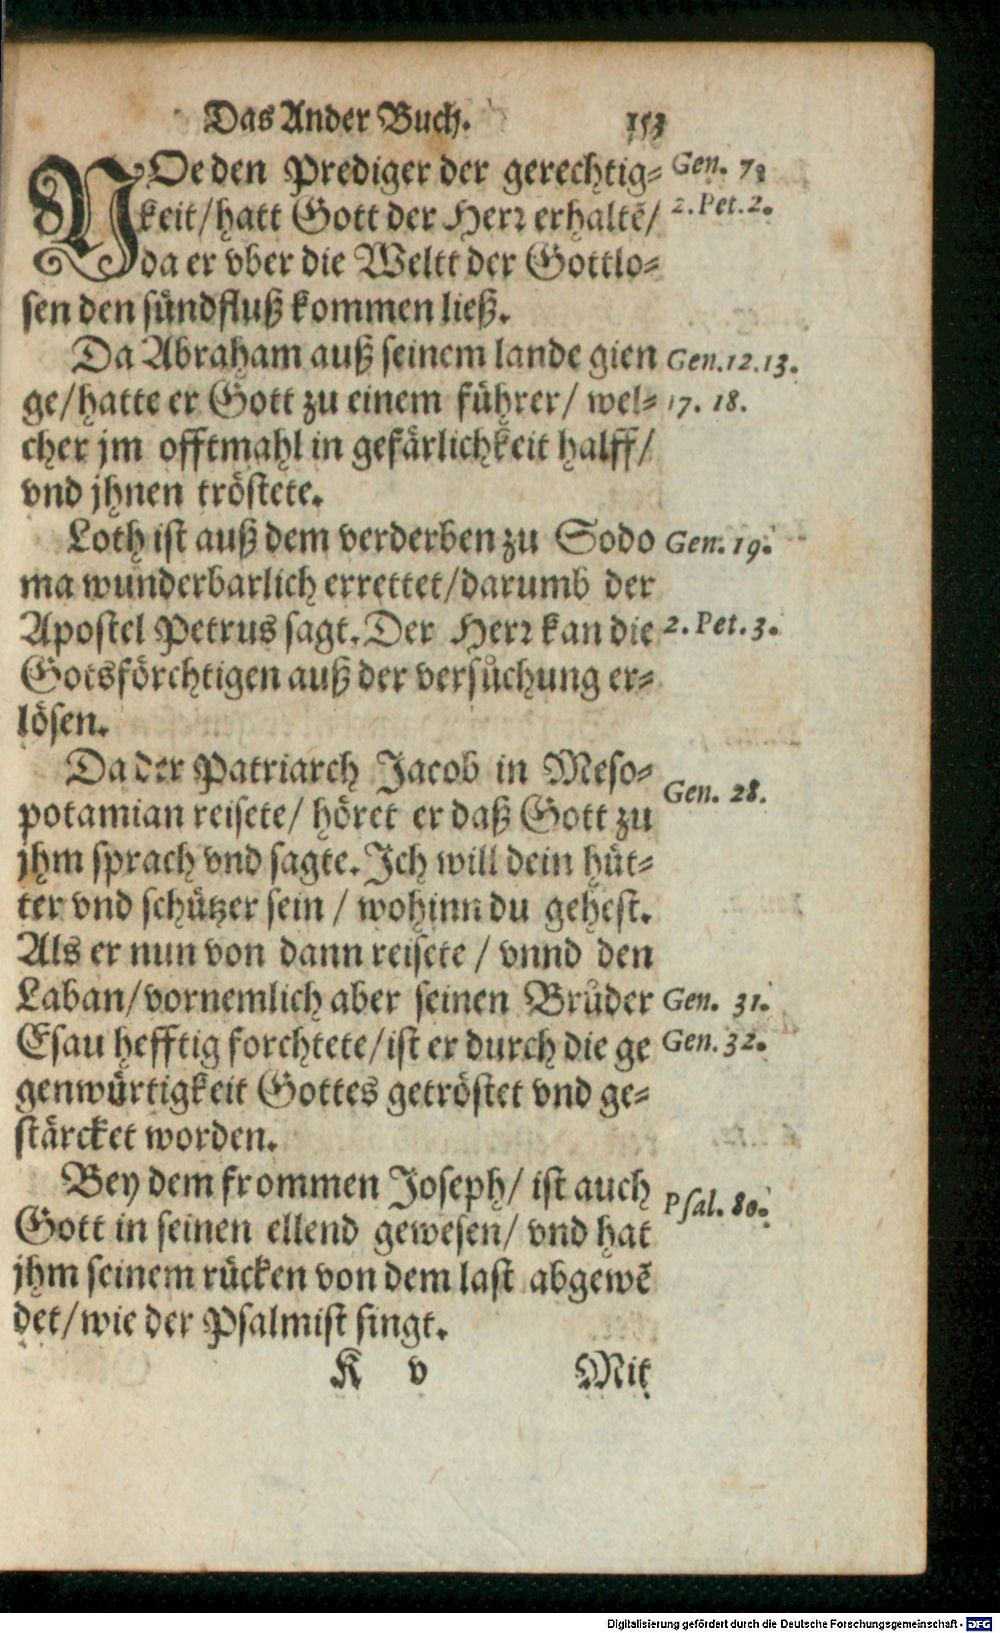 Das Ander Buch. 153
NOe den Prediger der gerechtig⸗ Gen. 7.
keit/hatt Gott der Herr erhaltẽ/ 2. Pet. 2.
da er vber die Weltt der Gottlo⸗
sen den sündfluß kommen ließ.
Da Abraham auß seinem lande gien Gen. 12. 13.
ge/hatte er Gott zu einem führer/ wel⸗ 17. 18.
cher jm offtmahl in gefärlichkeit halff/
vnd jhnen tröstete.
Loth ist auß dem verderben zu Sodo Gen. 19.
ma wunderbarlich errettet/darumb der
Apostel Petrus sagt. Der Herr kan die 2. Pet. 3.
Gotsförchtigen auß der versůchung er⸗
lösen.
Da der Patriarch Jacob in Meso⸗
Gen. 28.
potamian reisete/ höret er daß Gott zu
jhm sprach vnd sagte. Ich will dein hüt⸗
ter vnd schützer sein / wohinn du gehest.
Als er nun von dann reisete / vnnd den
Laban/vornemlich aber seinen Brůder Gen. 31.
Esau hefftig forchtete/ist er durch die ge Gen. 32.
genwürtigkeit Gottes getröstet vnd ge⸗
stärcket worden.
Bey dem frommen Joseph/ ist auch
Psal. 80.
Gott in seinen ellend gewesen/ vnd hat
jhm seinem rücken von dem last abgewẽ
det/wie der Psalmist singt.
K v Mit
Digitalisierung gefördert durch die Deutsche Forschungsgemeinschaft - DFG